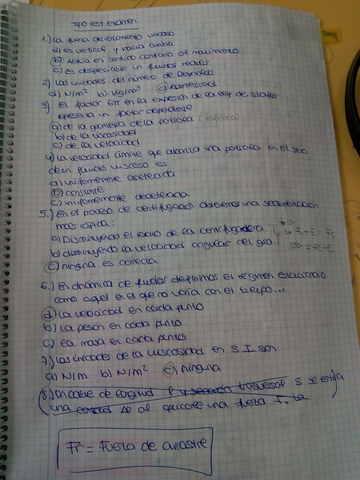 TIPO TEST EXAMEN
1.) La fuerza de rozamiento viscoso
a) es vertical y hacia arriba
b) actúa en sentido contrario al movimiento
c) es despreciable en fluidos reales
2) Las unidades del número de Reynolds
a) N/m² b) kg/m³ c) adimensional
3) El factor 6π en la expresión de la ley de Stokes
representa un factor dependiente
a) de la geometría de la partícula (esférica)
b) de la viscosidad
c) de la velocidad
4) La velocidad límite que alcanza una partícula en el seno
de un fluido viscoso es
a) uniformemente acelerada
b) constante
c) uniformemente decelerada
5.) En el proceso de centrifugación obtenemos una sedimentación
mas rápida:
a) Disminuyendo el radio de la centrifugadora
b) disminuyendo la velocidad angular del giro
c) ninguna es correcta
6.) En dinámica de fluidos definimos el régimen estacionario
como aquel en el que no varía con el tiempo...
a) La velocidad en cada punto
b) La presión en cada punto
c) La masa en cada punto
7.) Las unidades de la viscosidad en S.I son
a) N/m b) N/m² c) ninguna
8.) Un cable de longitud l y sección trasversal S se estira
una al aplicarle una fuerza F. La
Fr = fuerza de arrastre